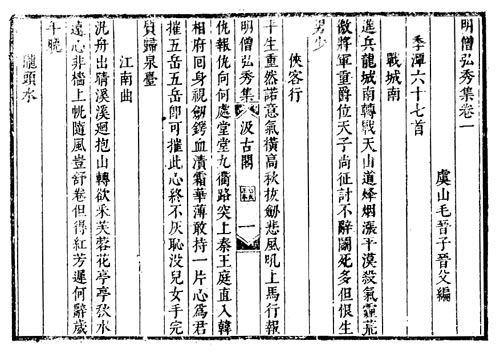 明僧弘秀集卷一
虞山毛晉子晉父編
季潭六十七首
戰城南
進兵龍城南轉戰天山道烽烟漲平漠殺氣霾荒
徼將軍重爵位天子尚征討不辭鬭死多但恨生
男少
俠客行
平生重然諾意氣橫高秋拔劒悲風吼上馬行報
明僧弘秀集 汲古閣 一
仇報仇向何處堂堂九衢路突上秦王庭直入韓
相府回身視劒鍔血漬霜華薄敢持一片心爲君
摧五岳五岳卽可摧此心終不灰恥没兒女手完
質歸泉臺
江南曲
汎舟出晴溪溪迴抱山轉欲采芙蓉花亭亭秋水
遠心非檣上帆隨風豈舒卷但得紅芳遲何辭歲
年晚
隴頭水